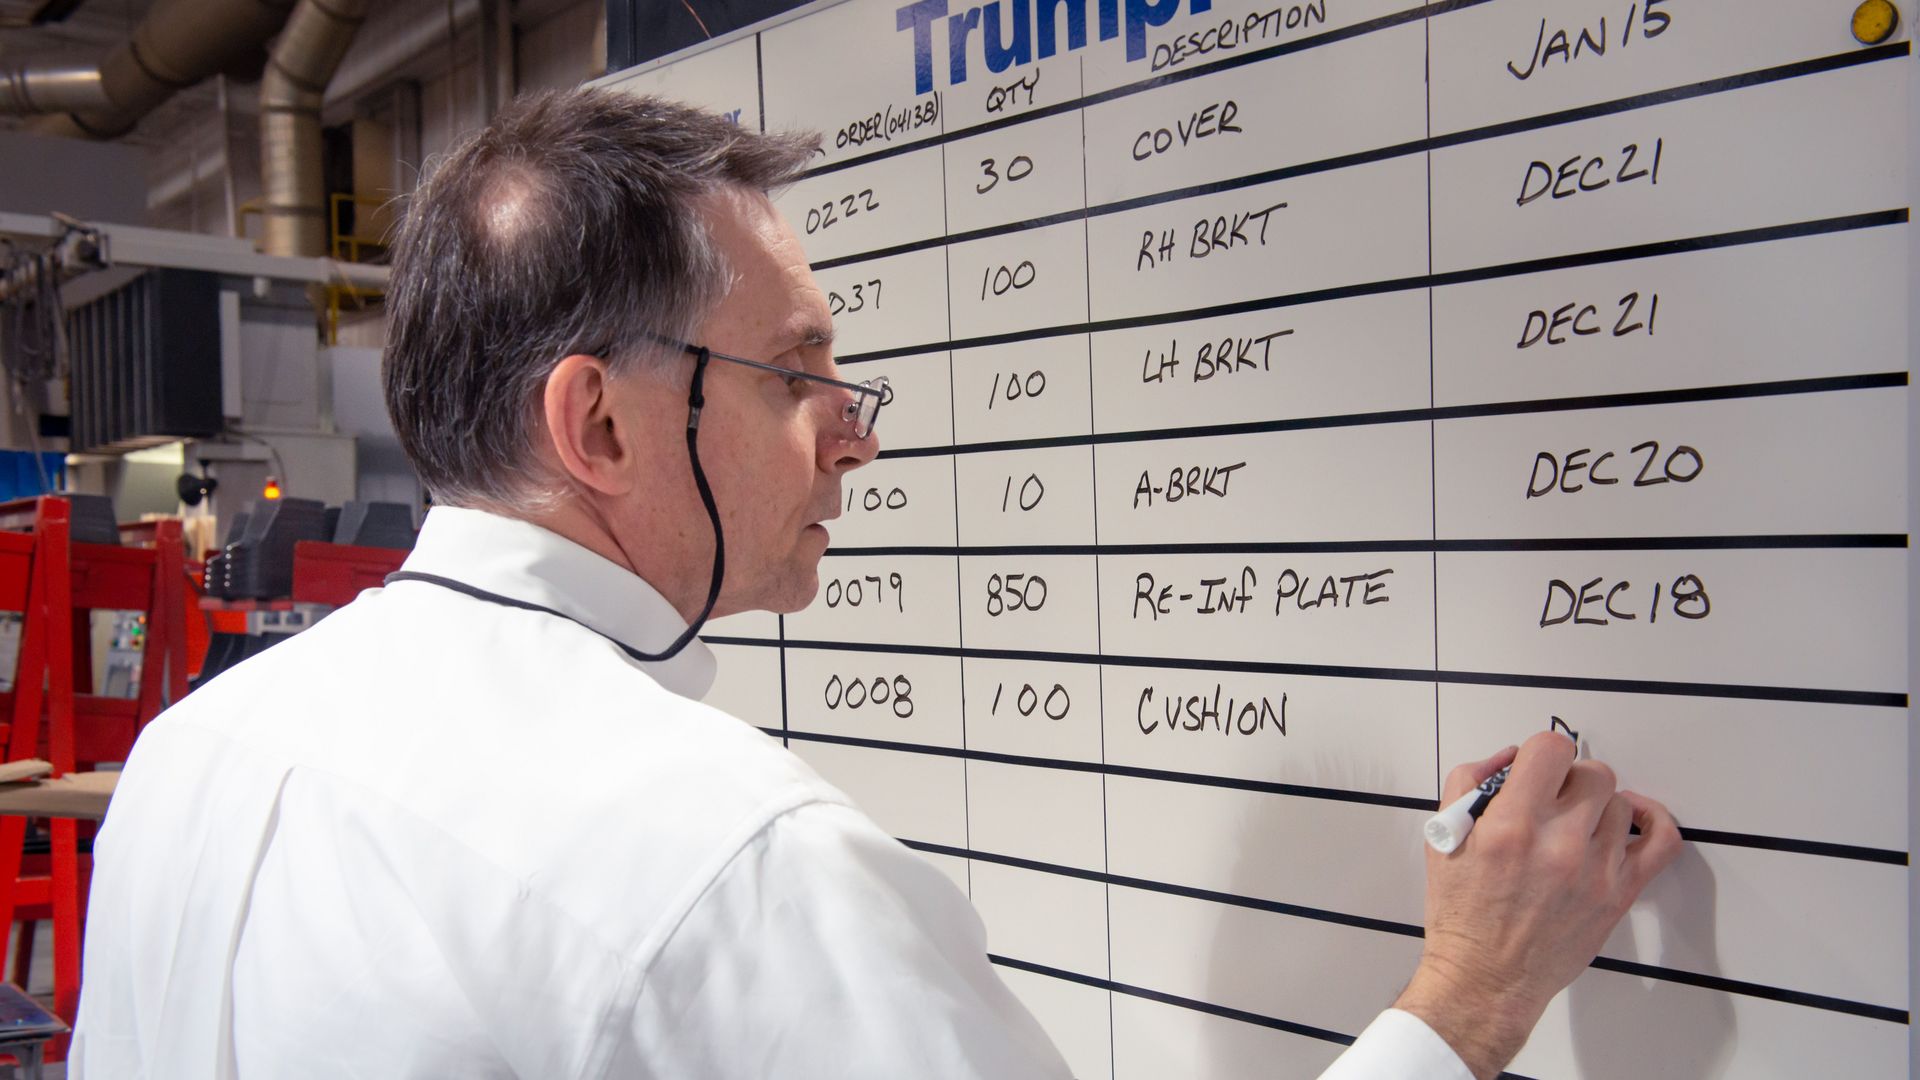 Trump
ORDER(04138) QTY DESCRIPTION
0222 30 COVER JAN 15
037 100 RH BRKT DEC 21
100 LH BRKT DEC 21
100 10 A-BRKT DEC 20
0079 850 RE-INF PLATE DEC 18
0008 100 CUSHION